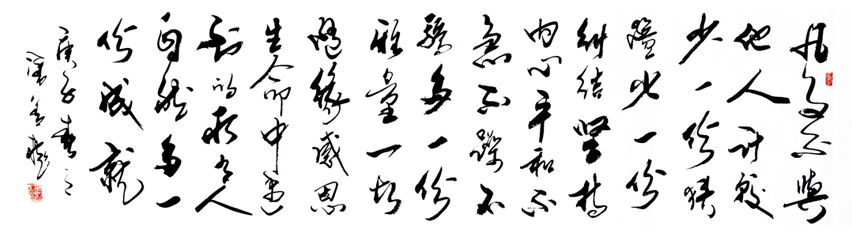 凡事不與
他人计较
少一份猜
疑少一份
纠结堅持
内心平和不
急不躁不
骄多一份
雅量一切
随缘感恩
生命中遇
到的所有人
自然多一
份成就
庚子春之